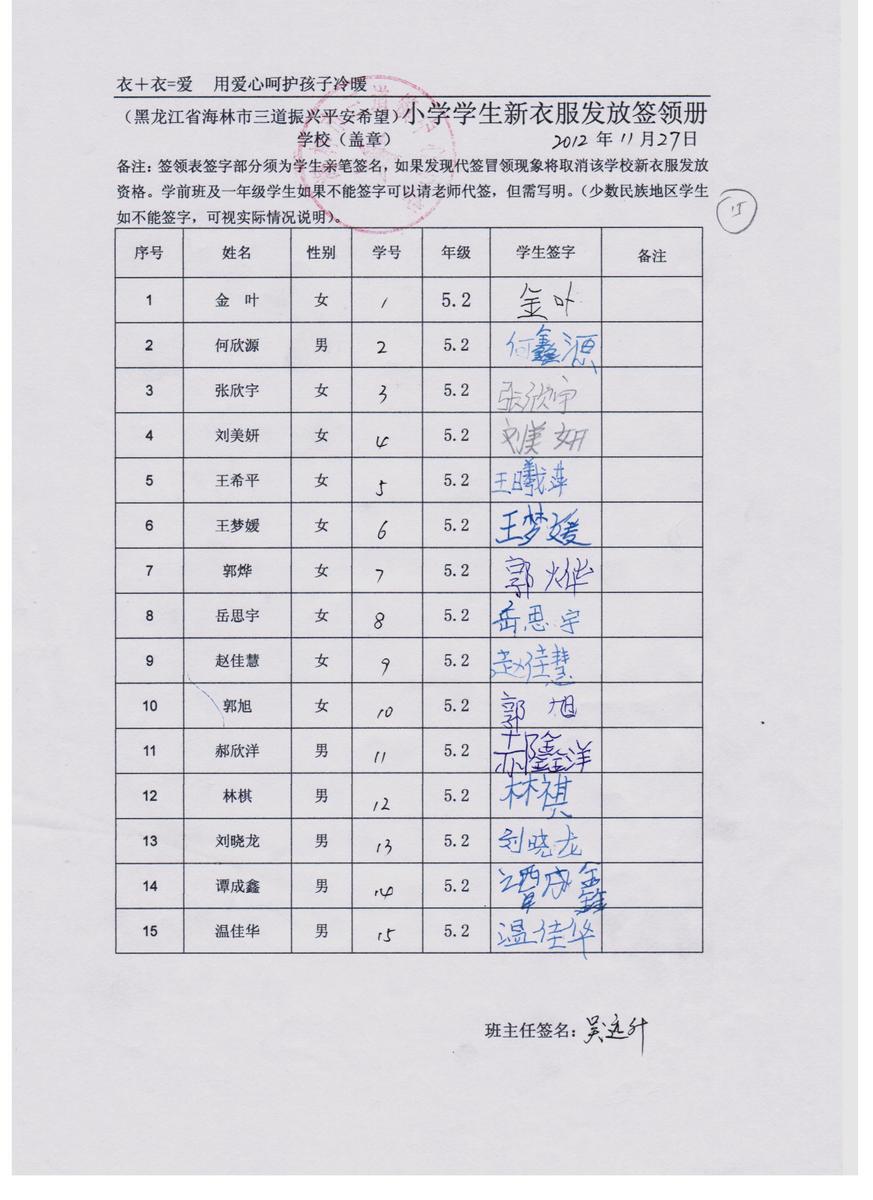 衣＋衣=爱 用爱心呵护孩子冷暖
（黑龙江省海林市三道振兴平安希望）小学学生新衣服发放签领册
学校（盖章） 2012 年 11 月 27 日
备注：签领表签字部分须为学生亲笔签名，如果发现代签冒领现象将取消该学校新衣服发放
资格。学前班及一年级学生如果不能签字可以请老师代签，但需写明。（少数民族地区学生
如不能签字，可视实际情况说明）。
15
序号 姓名 性别 学号 年级 学生签字 备注
1 金 叶 女 1 5.2 金叶
2 何欣源 男 2 5.2 何鑫源
3 张欣宇 女 3 5.2 张欣宇
4 刘美妍 女 4 5.2 刘美妍
5 王希平 女 5 5.2 王曦萍
6 王梦媛 女 6 5.2 王梦媛
7 郭烨 女 7 5.2 郭烨
8 岳思宇 女 8 5.2 岳思宇
9 赵佳慧 女 9 5.2 赵佳慧
10 郭旭 女 10 5.2 郭旭
11 郝欣洋 男 11 5.2 郝鑫洋
12 林棋 男 12 5.2 林祺
13 刘晓龙 男 13 5.2 刘晓龙
14 谭成鑫 男 14 5.2 谭成鑫
15 温佳华 男 15 5.2 温佳华
班主任签名：吴远升